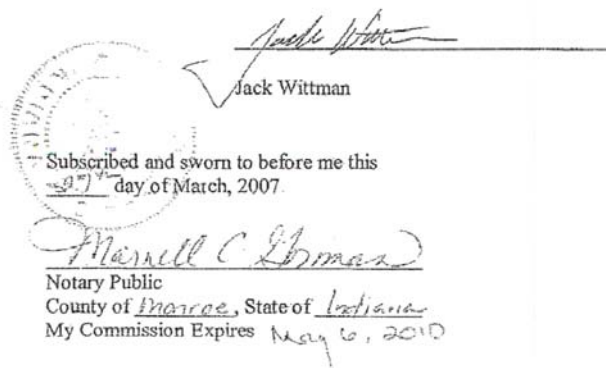 Jack Wittman
Jack Wittman
Subscribed and sworn to before me this
27th day of March, 2007
Marnell C Gorman
Notary Public
County of Monroe, State of Indiana
My Commission Expires May 6, 2010